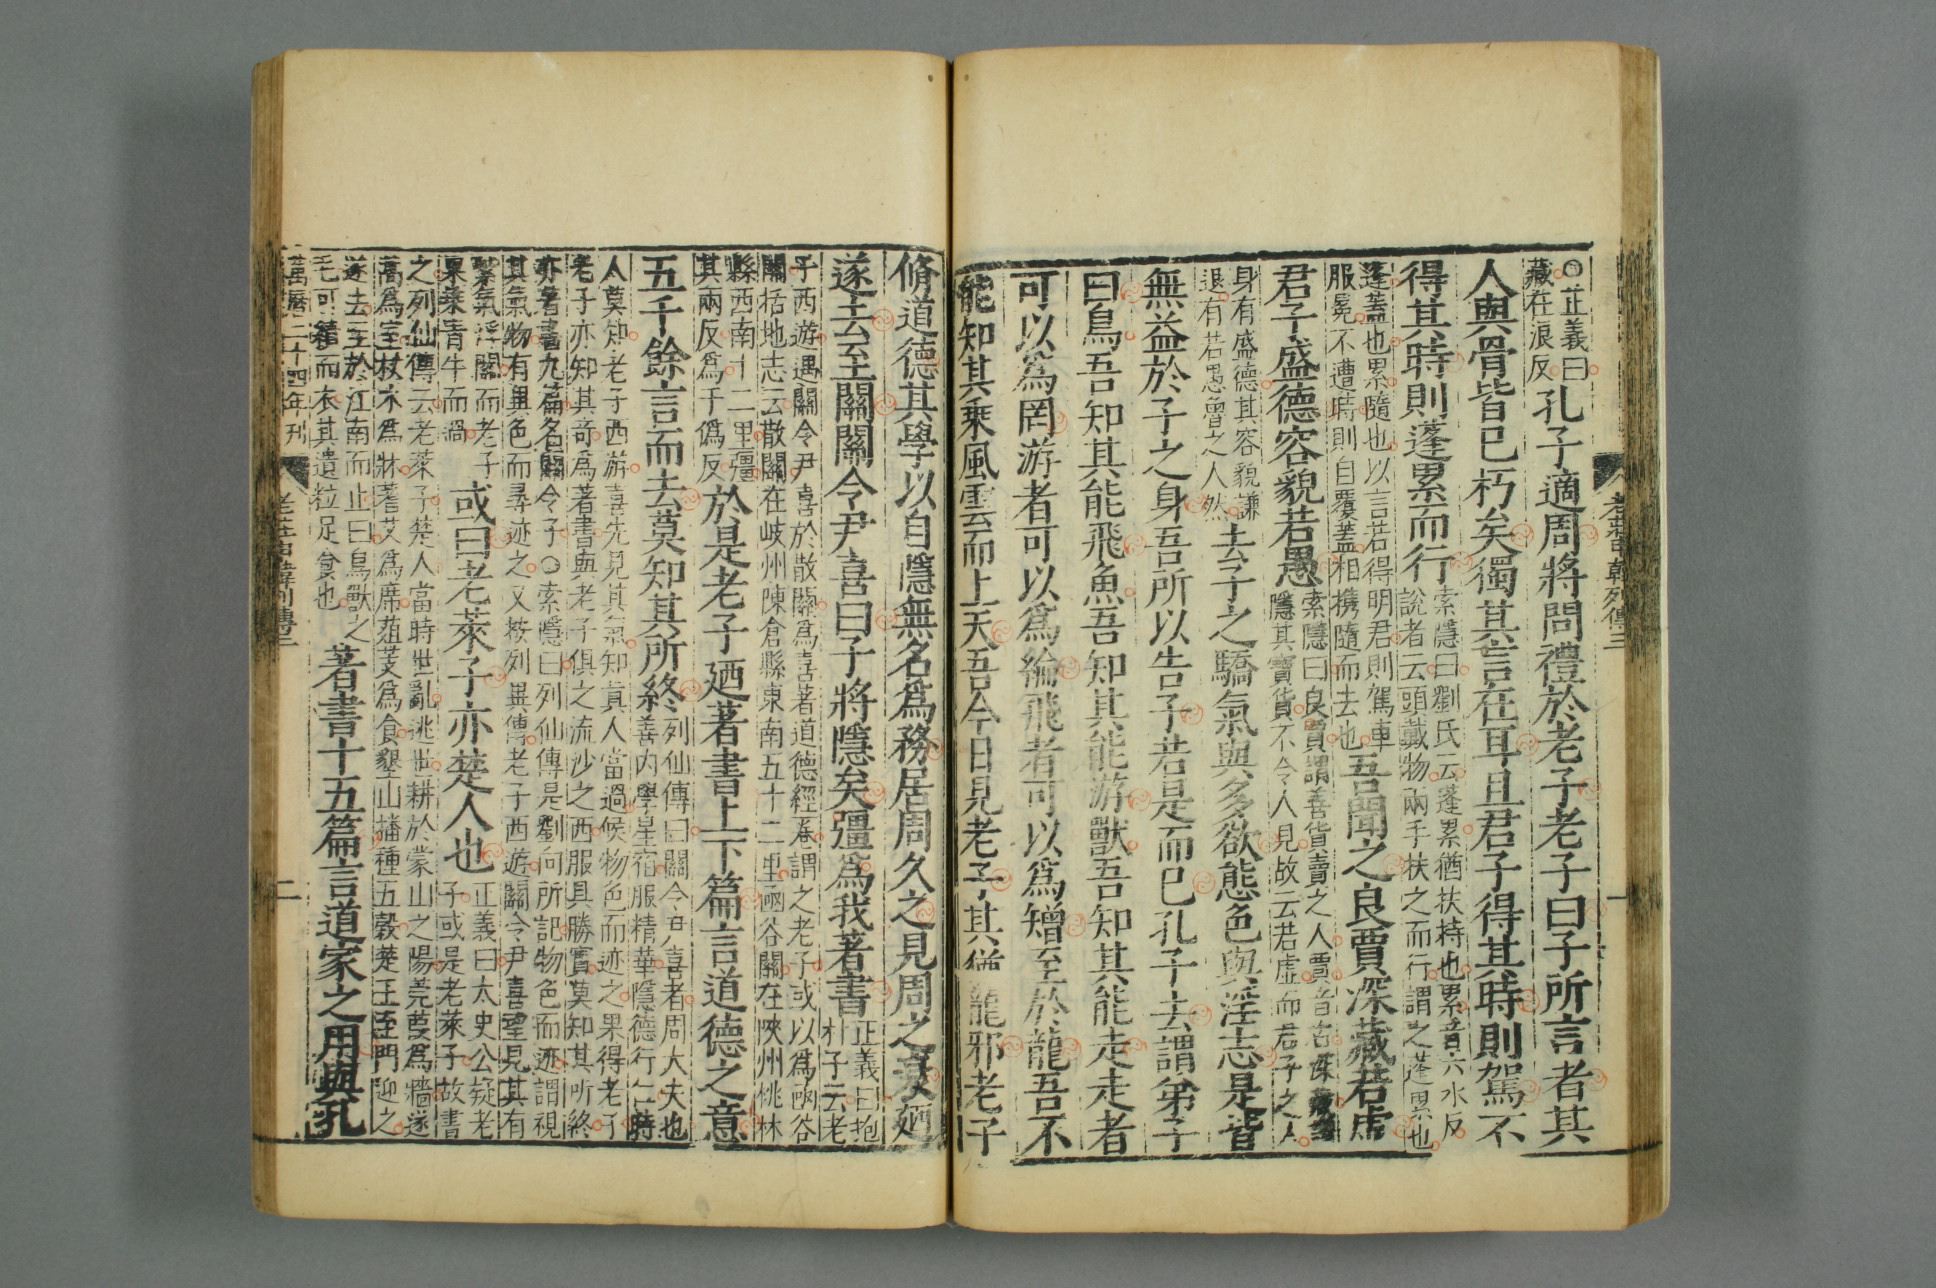 老莊申韓列傳三
一
○正義曰
藏在浪反
孔子適周將問禮於老子老子曰子所言者其
人與骨皆已朽矣獨其言在耳且君子得其時則駕不
得其時則蓬累而行
索隱曰劉氏云蓬累猶扶持也累音六水反
說者云頭戴物兩手扶之而行謂之蓬累也
蓬蓋也累隨也以言若得明君則駕車
服冕不遭時則自覆蓋相携隨而去也
吾聞之良賈深藏若虛
君子盛德容貌若愚
索隱曰良賈謂善貨賣之人賈音古深藏謂
隱其寶貨不令人見故云若虛而君子之人
身有盛德其容貌謙
退有若愚魯之人然
去子之驕氣與多欲態色與淫志是皆
無益於子之身吾所以告子若是而已孔子去謂弟子
曰鳥吾知其能飛魚吾知其能游獸吾知其能走走者
可以爲罔游者可以爲綸飛者可以爲矰至於龍吾不
能知其乘風雲而上天吾今日見老子其猶龍邪老子
脩道德其學以自隱無名爲務居周久之見周之衰廼
遂去至關關令尹喜曰子將隱矣彊爲我著書
正義曰抱
朴子云老
子西遊遇關令尹喜於散關爲喜著道德經一卷謂之老子或以爲函谷
關括地志云散關在岐州陳倉縣東南五十二里函谷關在陝州桃林
縣西南十二里彊
其兩反爲于僞反
於是老子廼著書上下篇言道德之意
五千餘言而去莫知其所終
列仙傳曰關令尹喜者周大夫也
善內學星宿服精華隱德行仁時
人莫知老子西游喜先見其氣知真人當過候物色而迹之果得老子
老子亦知其奇爲著書與老子俱之流沙之西服具勝實莫知其所終
亦著書九篇名關令子○索隱曰列仙傳是劉向所記物色而迹謂視
其氣物有異色而尋迹之又按列異傳老子西遊關令尹喜望見其有
紫氣浮關而老子
果乘青牛而過
或曰老萊子亦楚人也
正義曰太史公疑老
子或是老萊子故書
之列仙傳云老萊子楚人當時世亂逃世耕於蒙山之陽莞葭爲牆蓬
蒿爲室杖木爲牀蓍艾爲席葅芰爲食墾山播種五穀楚王至門迎之
遂去至於江南而止曰鳥獸之
毛可績而衣其遺粒足食也
著書十五篇言道家之用與孔
萬曆二十四年刊
老莊申韓列傳三
二